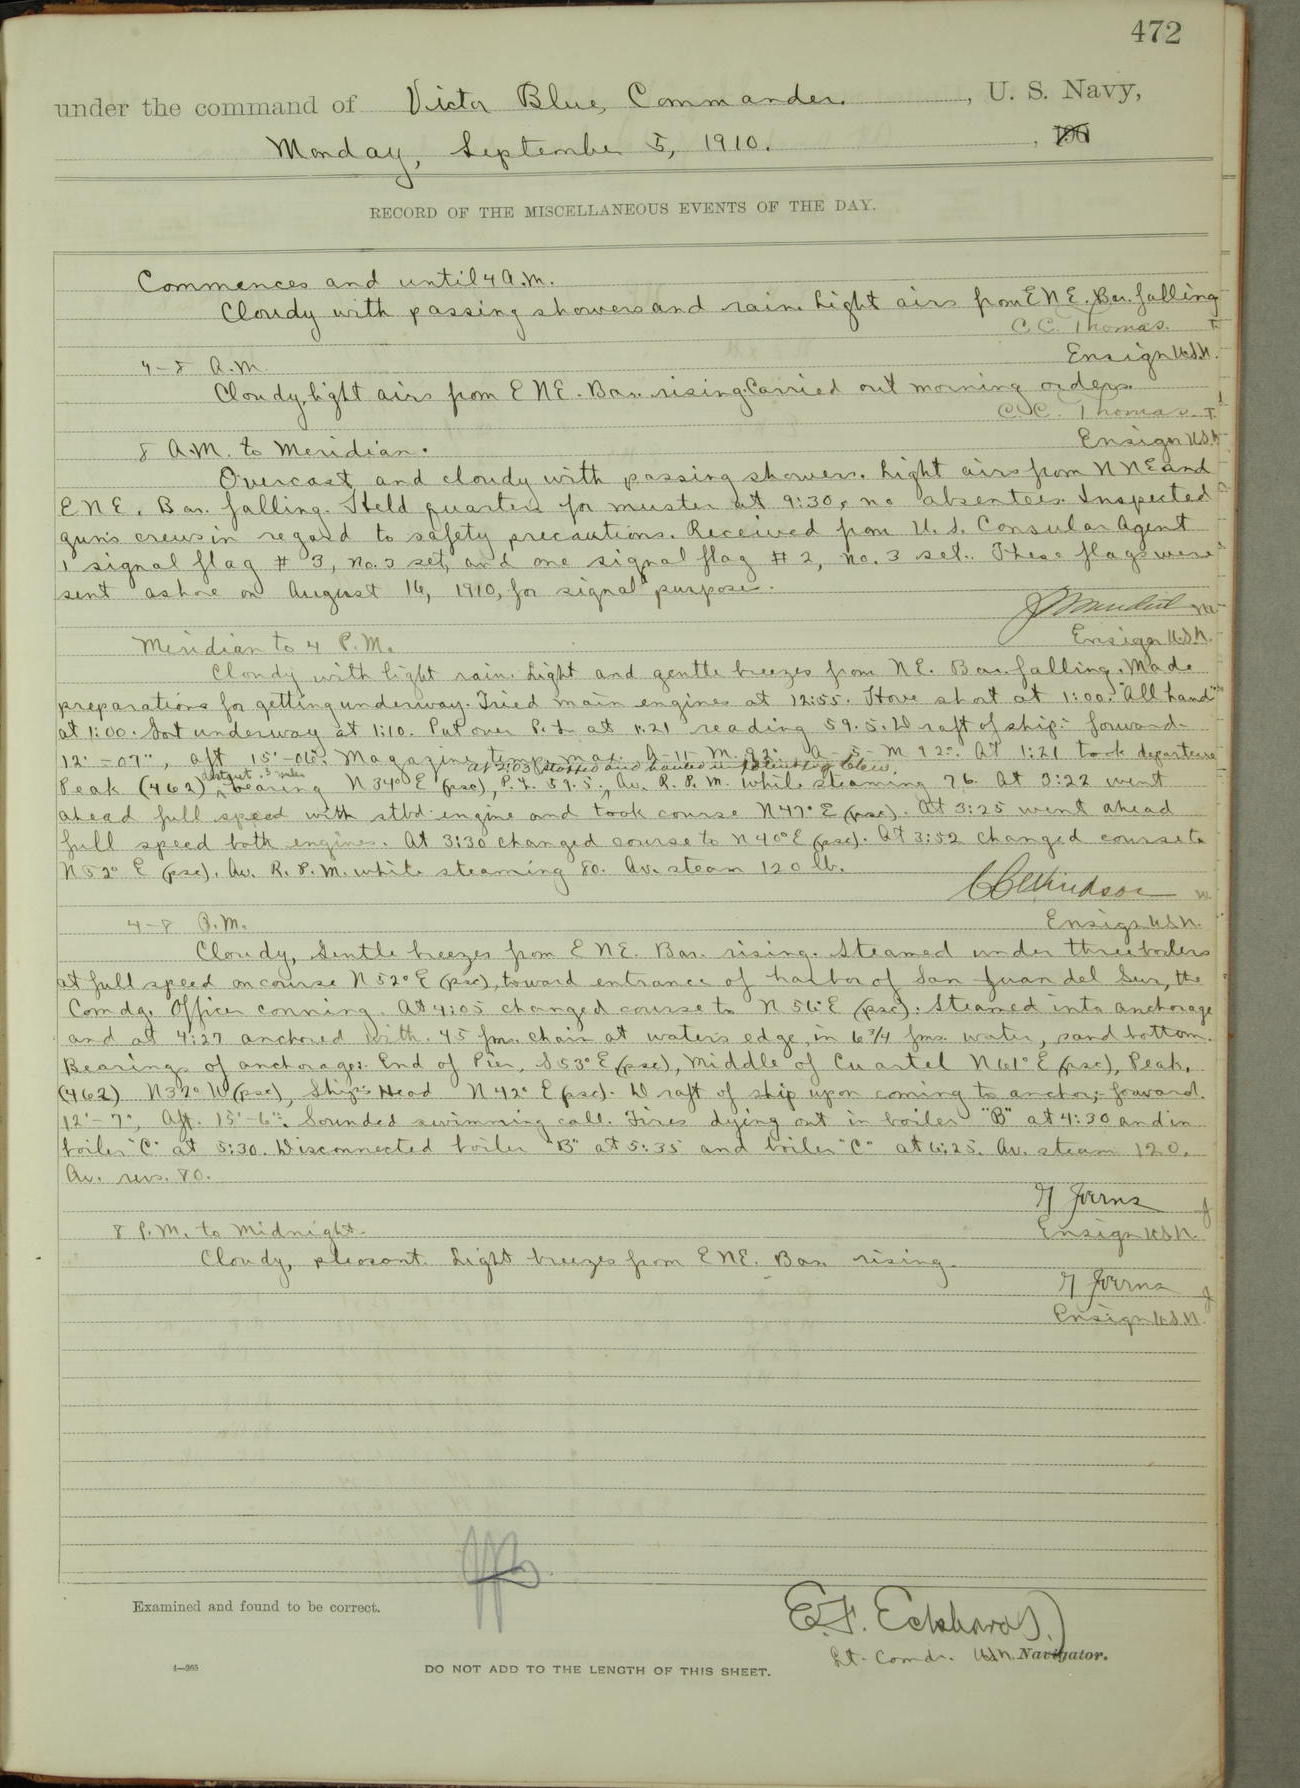 472
under the command of Victor Blue, Commander. , U. S. Navy,
Monday, September 5, 1910. , 190
RECORD OF THE MISCELLANEOUS EVENTS OF THE DAY.
Commences and until 4 A.M.
Cloudy with passing showers and rain. Light airs from ENE. Bar. falling
C. C. Thomas. T.
Ensign U.S.N.
4-8 A.M.
Cloudy, light airs from ENE. Bar. rising. Carried out morning orders.
C. C. Thomas. T.
Ensign U.S.N.
8 A.M. to Meridian.
Overcast and cloudy with passing showers. Light airs from NNE and
ENE. Bar. falling. Held quarters for muster at 9:30, no absentees. Inspected
gun's crews in regard to safety precautions. Received from U. S. Consular Agent
1 signal flag # 3, no. 3 set, and one signal flag # 2, no. 3 set. These flags were
sent ashore on August 16, 1910, for signal purpose.
Ensign U.S.N.
Meridian to 4 P.M.
Cloudy with light rain. Light and gentle breezes from NE. Bar. falling. Made
preparations for getting underway. Tried main engines at 12:55. Hove short at 1:00. "All hands"
at 1:00. Got underway at 1:10. Put over P. L. at 1:21 reading 59.5. Draft of ship:- forward-
12'-07", aft 15'-06". Magazine temp. max. A-11-M 92°. A-5-M 92°. At 1:21 took departure
at 2:03 stopped and hauled in
Peak (462) distant .5 miles bearing N 34° E (psc), P. L. 59.5., Av. R. P. M. while steaming 76. At 3:22 went
ahead full speed with stbd. engine and took course N 47° E (psc). At 3:25 went ahead
full speed both engines. At 3:30 changed course to N 40° E (psc). At 3:52 changed course to
N 52° E (psc). Av. R. P. M. while steaming 80. Av. steam 120 lb.
Ensign U.S.N.
4-8 P.M.
Cloudy, Gentle breezes from ENE. Bar. rising. Steamed under three boilers
at full speed on course N 52° E (psc), toward entrance of harbor of San Juan del Sur, the
Comdg. Officer conning. At 4:05 changed course to N 56° E (psc). Steamed into anchorage
and at 4:27 anchored with 45 fms. chain at water's edge, in 6 3/4 fms. water, sand bottom.
Bearings of anchorage: End of Pier, S 53° E (psc), Middle of Cuartel N 61° E (psc), Peak,
(462) N 32° W (psc), Ship's Head N 42° E (psc). Draft of ship upon coming to anchor;- forward.
12'-7", Aft. 15'-6". Sounded swimming call. Fires dying out in boiler "B" at 4:30 and in
boiler "C" at 5:30. Disconnected boiler "B" at 5:35 and boiler "C" at 6:25. Av. steam 120.
Av. revs. 80.
Ensign U.S.N.
8 P.M. to Midnight.
Cloudy, pleasant. Light breezes from ENE. Bar. rising.
Ensign U.S.N.
Examined and found to be correct.
E. F. Eckhardt.
Lt. Comdr. U.S.N. Navigator.
1—265
DO NOT ADD TO THE LENGTH OF THIS SHEET.